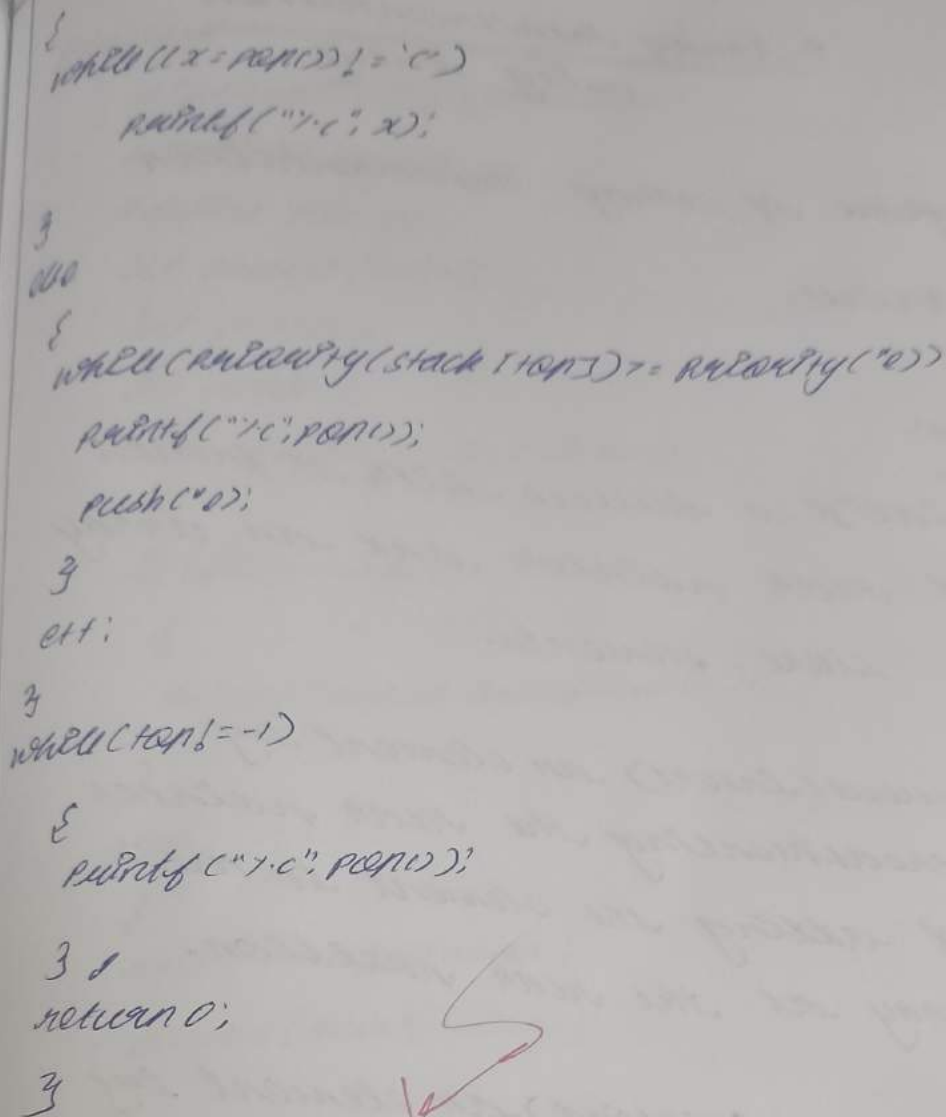 {
while((x=pop())!='(')
printf("%c", x);
}
else
{
while(priority(stack[top])>=priority(*e))
printf("%c",pop());
push(*e);
}
e++;
}
while(top!=-1)
{
printf("%c",pop());
}
return 0;
}